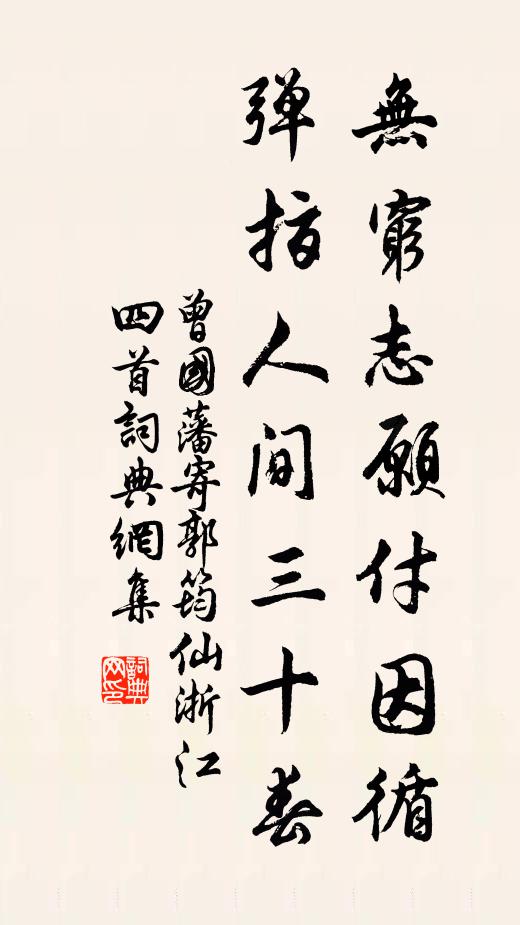 無窮志願付因循
弹指人间三十春
曾國藩寄郭筠仙浙江
四首詞典網集
詞典
网印